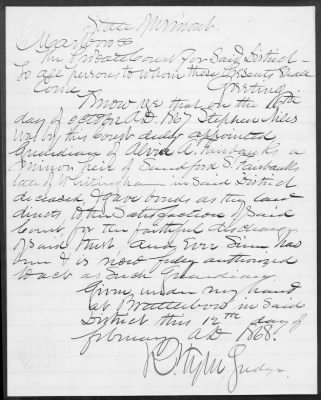 State Vermont
Marlboro ss
The Probate Court for Said District -
To all persons to whom these presents Shall
Come Greeting
Know ye that on the
day of October A.D. 1867 Stephen Niles
was by this Court duly appointed
Guardian of Alvin A. Fairbanks a
minor heir of Sandford S. Fairbanks
late of Whitingham in Said District
deceased & gave bonds as the law
directs to the Satisfaction of Said
Court for the faithful discharge
of said trust, And, Ever Since has
been & is now fully authorized
to act as Such Guardian,
Given under my hand
at Brattleboro in Said
District this 12th day of
February AD 1868.
Judge